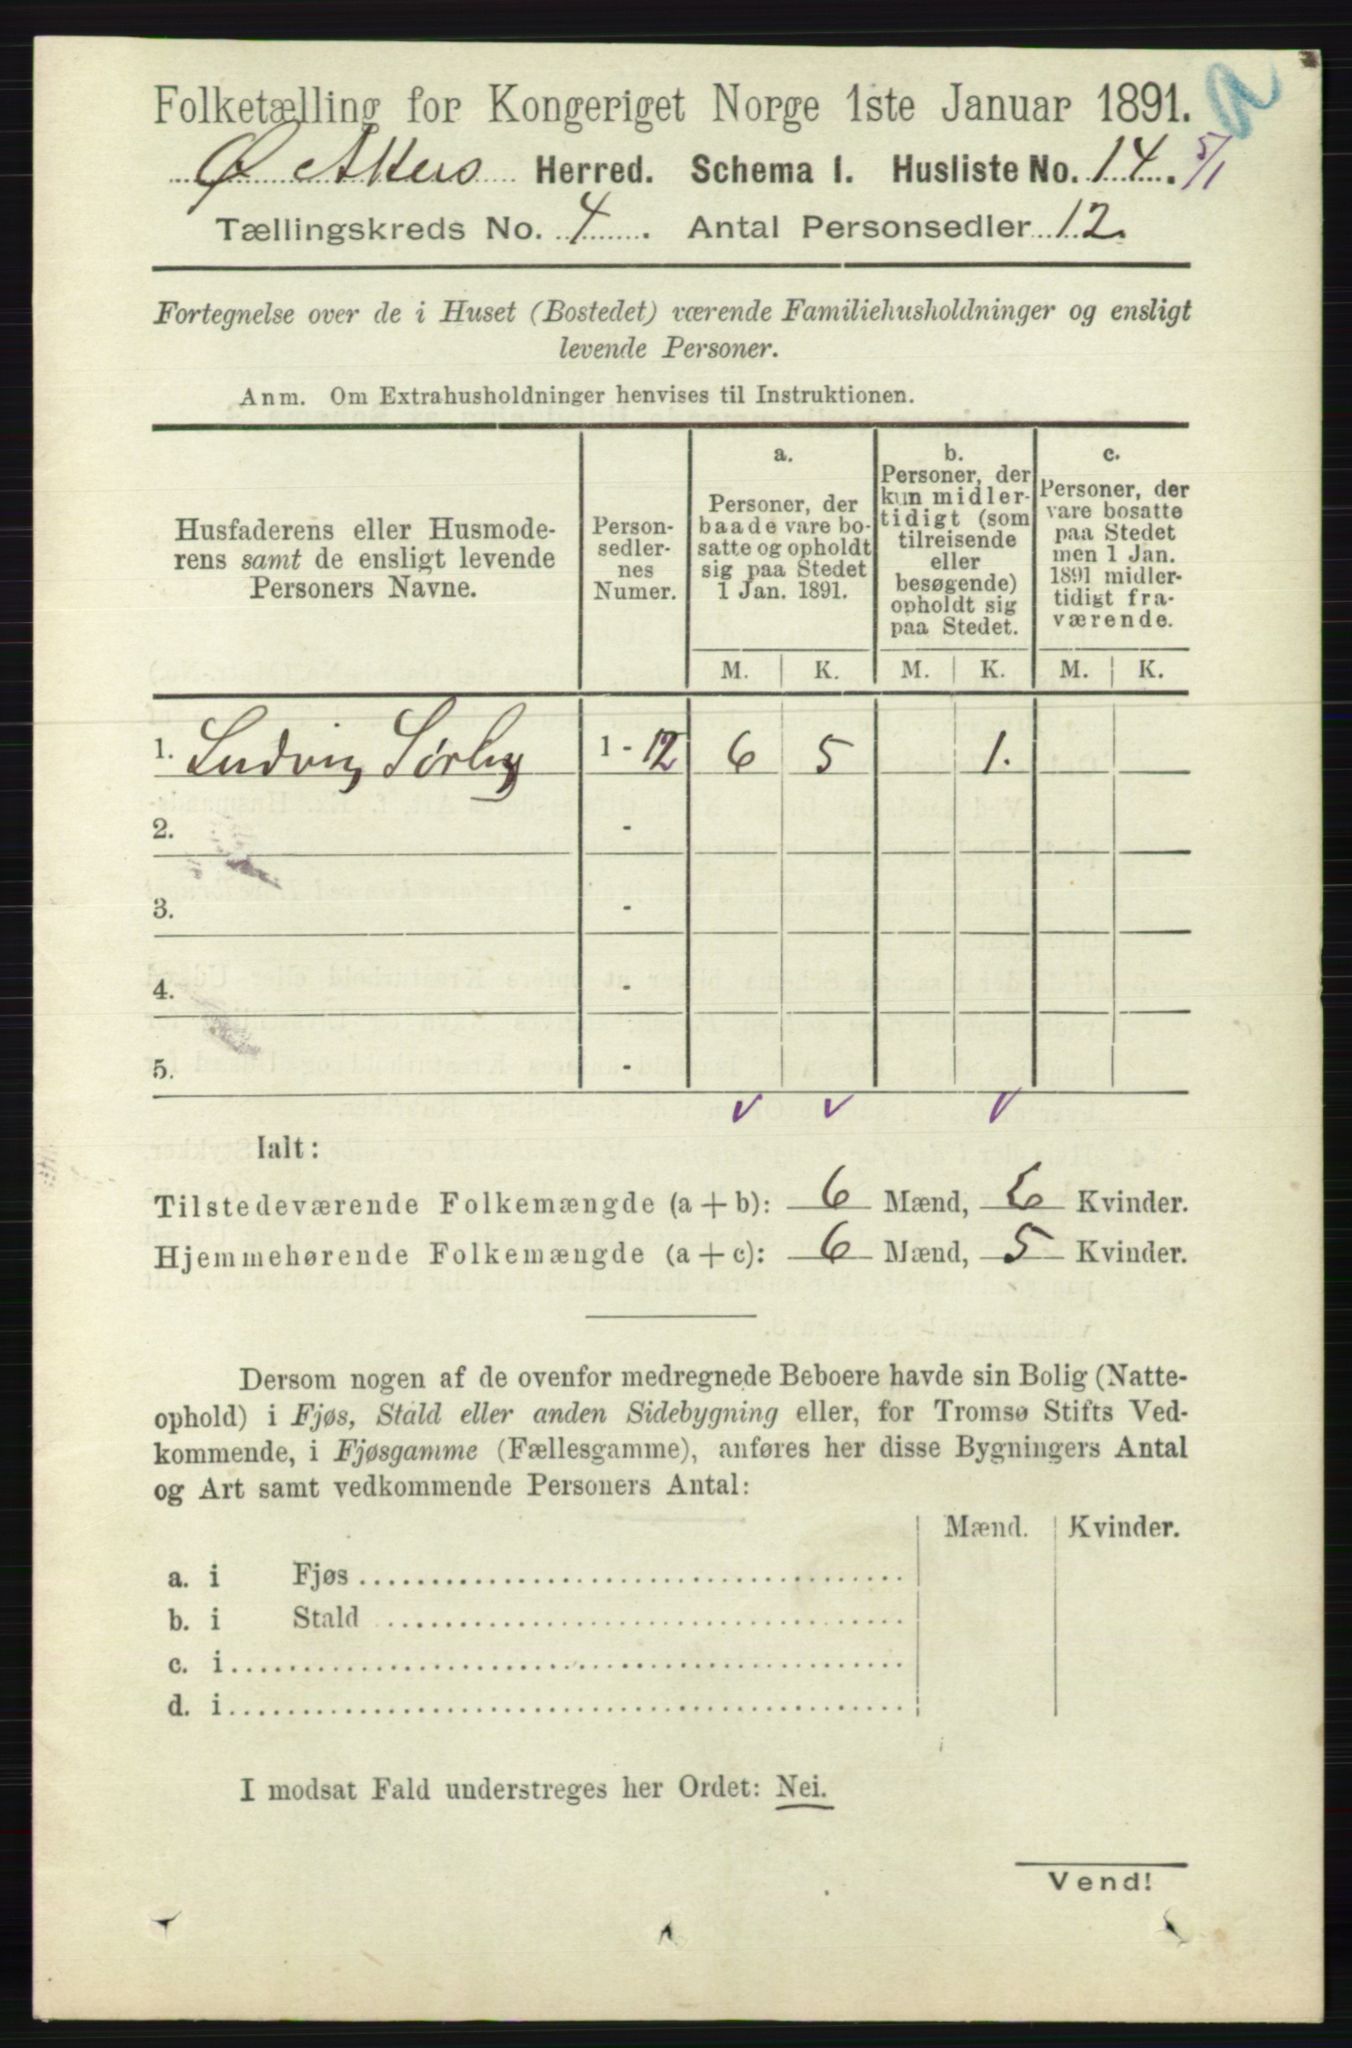 Folketælling for Kongeriget Norge 1ste Januar 1891.
Ø Akers Herred. Schema I. Husliste No. 14. 5/1
Tællingskreds No. 4. Antal Personsedler 12.
Fortegnelse over de i Huset (Bostedet) værende Familiehusholdninger og ensligt
levende Personer.
Anm. Om Extrahusholdninger henvises til Instruktionen.
Husfaderens eller Husmode-
rens samt de ensligt levende
Personers Navne.
Person-
sedler-
nes
Numer.
a.
Personer, der
baade vare bo-
satte og opholdt
sig paa Stedet
1 Jan. 1891.
b.
Personer, der
kun midler-
tidigt (som
tilreisende
eller
besøgende)
opholdt sig
paa Stedet.
c.
Personer, der
vare bosatte
paa Stedet
men 1 Jan.
1891 midler-
tidigt fra-
værende.
M. K. M. K. M. K.
1. Ludvig Sørby 1 - 12 6 5 1.
2. -
3. -
4. -
5. -
Ialt:
Tilstedeværende Folkemængde (a + b): 6 Mænd, 6 Kvinder.
Hjemmehørende Folkemængde (a + c): 6 Mænd, 5 Kvinder.
Dersom nogen af de ovenfor medregnede Beboere havde sin Bolig (Natte-
ophold) i Fjøs, Stald eller anden Sidebygning eller, for Tromsø Stifts Ved-
kommende, i Fjøsgamme (Fællesgamme), anføres her disse Bygningers Antal
og Art samt vedkommende Personers Antal:
Mænd. Kvinder.
a. i Fjøs
b. i Stald
c. i
d. i
I modsat Fald understreges her Ordet: Nei.
Vend!